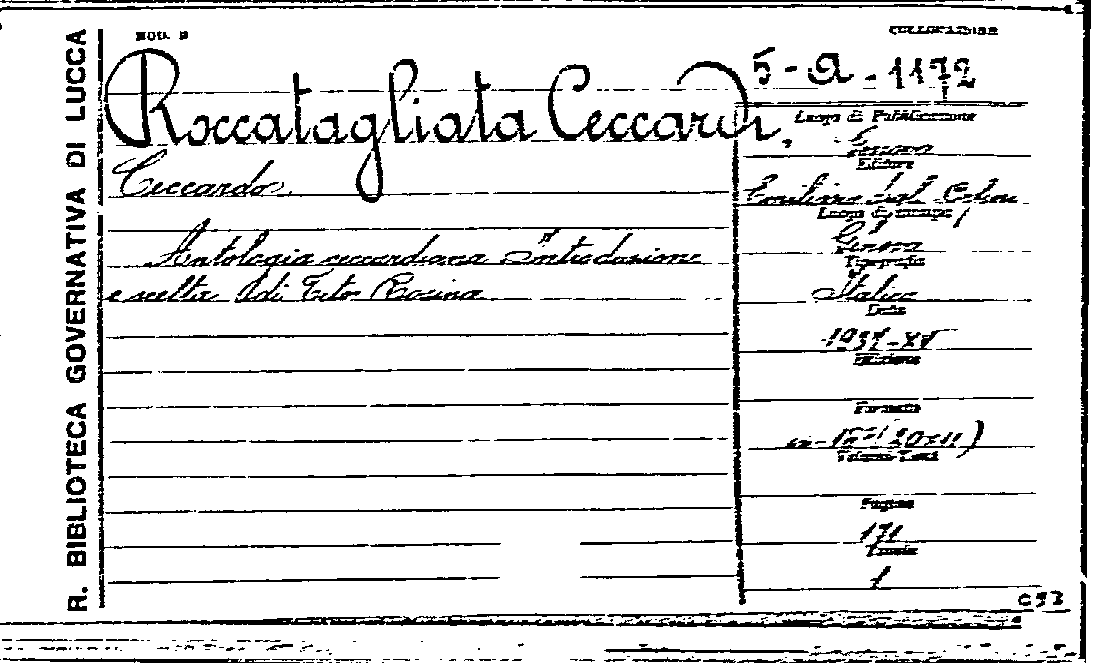 R. BIBLIOTECA GOVERNATIVA DI LUCCA
MOD. B
COLLOCAZIONE
5-A-1172
Roccatagliata Ceccardi,
Ceccardo
Antologia ceccardiana Introduzione
e scelta di Tito Rosina
Luogo di Pubblicazione
Genova
Editore
Emiliano degli Orfini
Luogo di stampa
Genova
Tipografia
Italica
Data
1937-XV
Edizione
Formato
in-16° (20x11)
Volumi-Tomi
Pagine
171
Tavole
1
C53